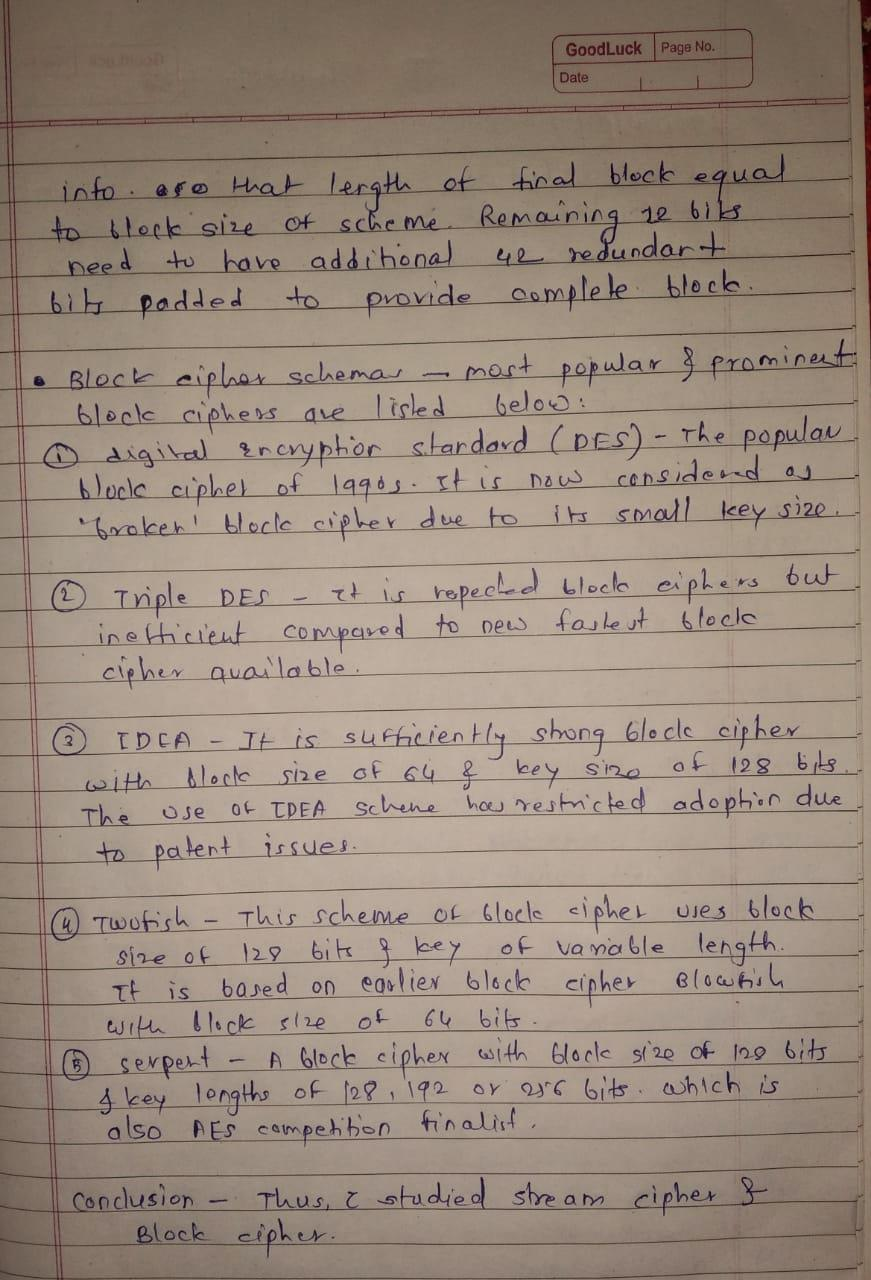 GoodLuck Page No.
Date
info. so that length of final block equal
to block size of scheme. Remaining 22 bits
need to have additional 42 redundant
bits padded to provide complete block.
• Block cipher schemas – most popular & prominent
block ciphers are listed below:
① digital Encryption standard (DES) - The popular
block cipher of 1990s. It is now considered as
'broken' block cipher due to its small key size.
② Triple DES - It is repected block ciphers but
inefficient compared to new fastest block
cipher available.
③ IDEA - It is sufficiently strong block cipher
with block size of 64 & key size of 128 bits.
The use of IDEA scheme has restricted adoption due
to patent issues.
④ Twofish - This scheme of block cipher uses block
size of 128 bits & key of variable length.
It is based on earlier block cipher Blowfish
with block size of 64 bits.
⑤ serpent - A block cipher with block size of 128 bits
& key lengths of 128, 192 or 256 bits. which is
also AES competition finalist.
Conclusion - Thus, I studied stream cipher &
Block cipher.